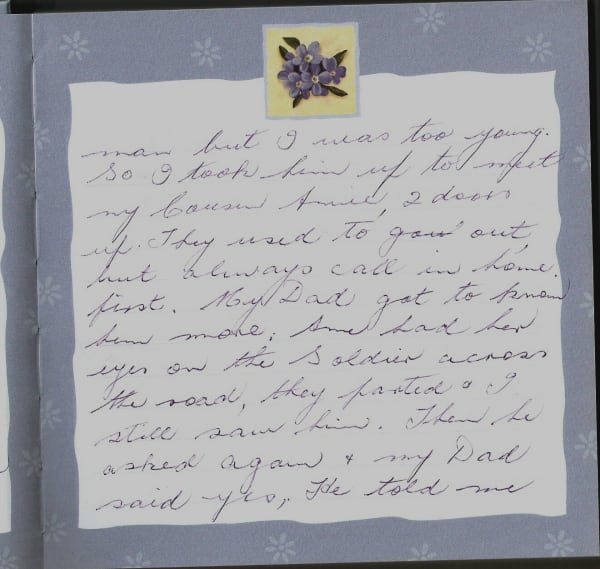 man but I was too young.
So I took him up to meet
my Cousin Amie, 2 doors
up. They used to go out,
but always call in home
first. My Dad got to know
him more; Ame had her
eyes on the Soldier across
the road, they parted & I
still saw him. Then he
asked again & my Dad
said yes,, He told me